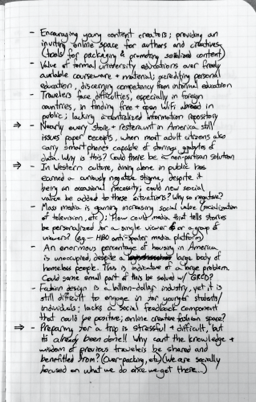 - Encouraging young content creators; providing an
inviting online space for authors and creatives
(tools for packaging & promoting serialized content)
- Value of normal university educations over freely
available courseware + material; quantifying personal
education, discerning competency from informal education
- Travelers face difficulties, especially in foreign
countries, in finding free + open wifi abroad in
public; lacking a centralized information repository
⇒ - Nearly every store + restaurant in America still
issues paper receipts, when most adult citizens also
carry smartphones capable of storing gigabytes of
data. Why is this? Could there be a non-partisan solution
⇒ - In Western culture, doing alone in public has
earned a curiously negative stigma, despite it
being an occasional necessity; could new social
value be added to these situations? Why so negative?
- Mass media is gaining increasing social value (socialization
of television, etc); How could media that tells stories
be personalized for a single viewer or a group of
viewers? (eg -- HBO multi-
media platform)
- An enormous percentage of housing in America
is unoccupied, despite a large body of
homeless people. This is indicative of a large problem.
Could some small part of this be solved w/
- Fashion design is a billion-dollar industry, yet it is
still difficult to engage in for younger students/
individuals; lacks a social feedback component
that could be positive; online creative fashion space?
⇒ - Preparing for a trip is stressful + difficult, but
it's already been done!! Why cant the knowledge +
wisdom of previous travelers be shared and
benefitted from? (Over-packing, etc) (We are socially
focused on what we do once we get there...)